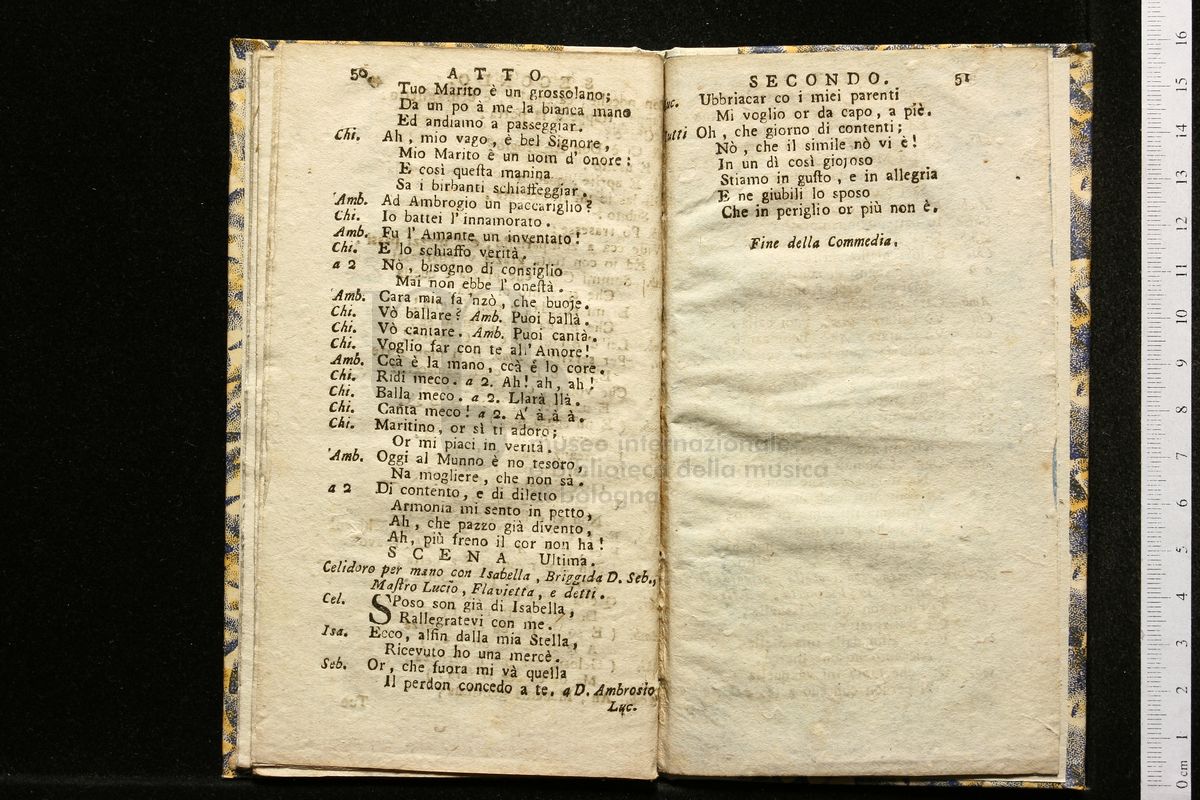 50 ATTO
Tuo Marito è un grossolano;
Da un po à me la bianca mano
Ed andiamo a passeggiar.
Chi. Ah, mio vago, è bel Signore,
Mio Marito è un uom d'onore;
E così questa manina
Sa i birbanti schiaffeggiar.
Amb. Ad Ambrogio un paccariglio?
Chi. Io battei l'innamorato.
Amb. Fu l'Amante un inventato!
Chi. E lo schiaffo verità.
a 2 Nò, bisogno di consiglio
Mai non ebbe l'onestà.
Amb. Cara mia fa 'nzò, che buoje.
Chi. Vò ballare? Amb. Puoi ballà.
Chi. Vò cantare. Amb. Puoi cantà.
Chi. Voglio far con te all'Amore!
Amb. Ccà è la mano, ccà è lo core.
Chi. Ridi meco. a 2. Ah! ah, ah!
Chi. Balla meco. a 2. Llarà llà.
Chi. Canta meco! a 2. A' à à à.
Chi. Maritino, or sì ti adoro;
Or mi piaci in verità.
Amb. Oggi al Munno è no tesoro,
Na mogliere, che non sà.
a 2 Di contento, e di diletto
Armonia mi sento in petto,
Ah, che pazzo già divento,
Ah, più freno il cor non ha!
SCENA Ultima.
Celidoro per mano con Isabella, Briggida D. Seb.,
Mastro Lucio, Flavietta, e detti.
Cel. SPoso son già di Isabella,
Rallegratevi con me.
Isa. Ecco, alfin dalla mia Stella,
Ricevuto ho una mercè.
Seb. Or, che fuora mi và quella
Il perdon concedo a te. a D. Ambrosio
Luc.
SECONDO. 51
Luc. Ubbriacar co i miei parenti
Mi voglio or da capo, a piè.
Tutti Oh, che giorno di contenti;
Nò, che il simile nò vi è!
In un dì così giojoso
Stiamo in gusto, e in allegria
E ne giubili lo sposo
Che in periglio or più non è.
Fine della Commedia.
museo internazionale
biblioteca della musica
bologna
0 cm 1 2 3 4 5 6 7 8 9 10 11 12 13 14 15 16